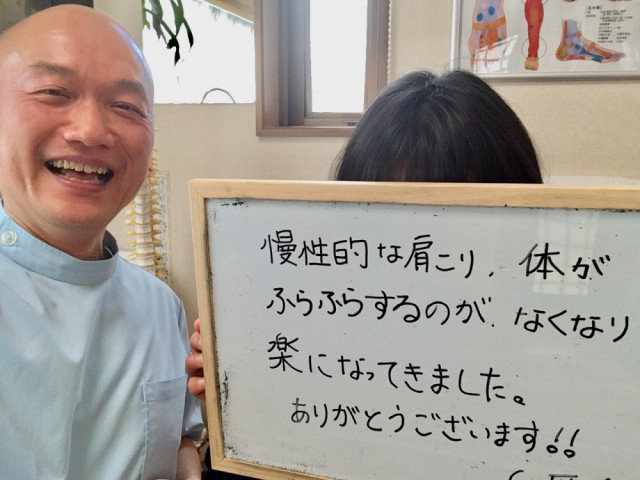 慢性的な肩こり、体が
ふらふらするのが、なくなり
楽になってきました。
ありがとうございます!!